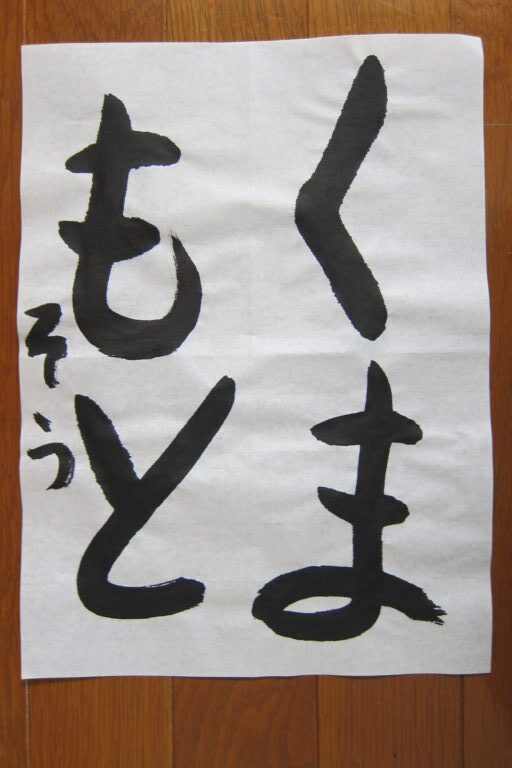 くま
もと
そう